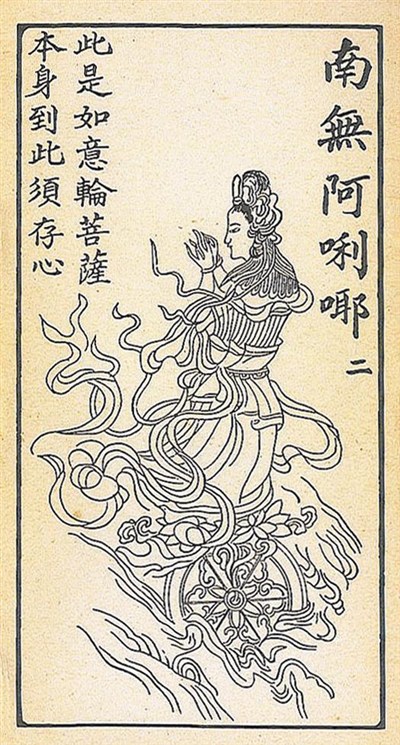 南無阿唎哪 二
此是如意輪菩薩
本身到此須存心